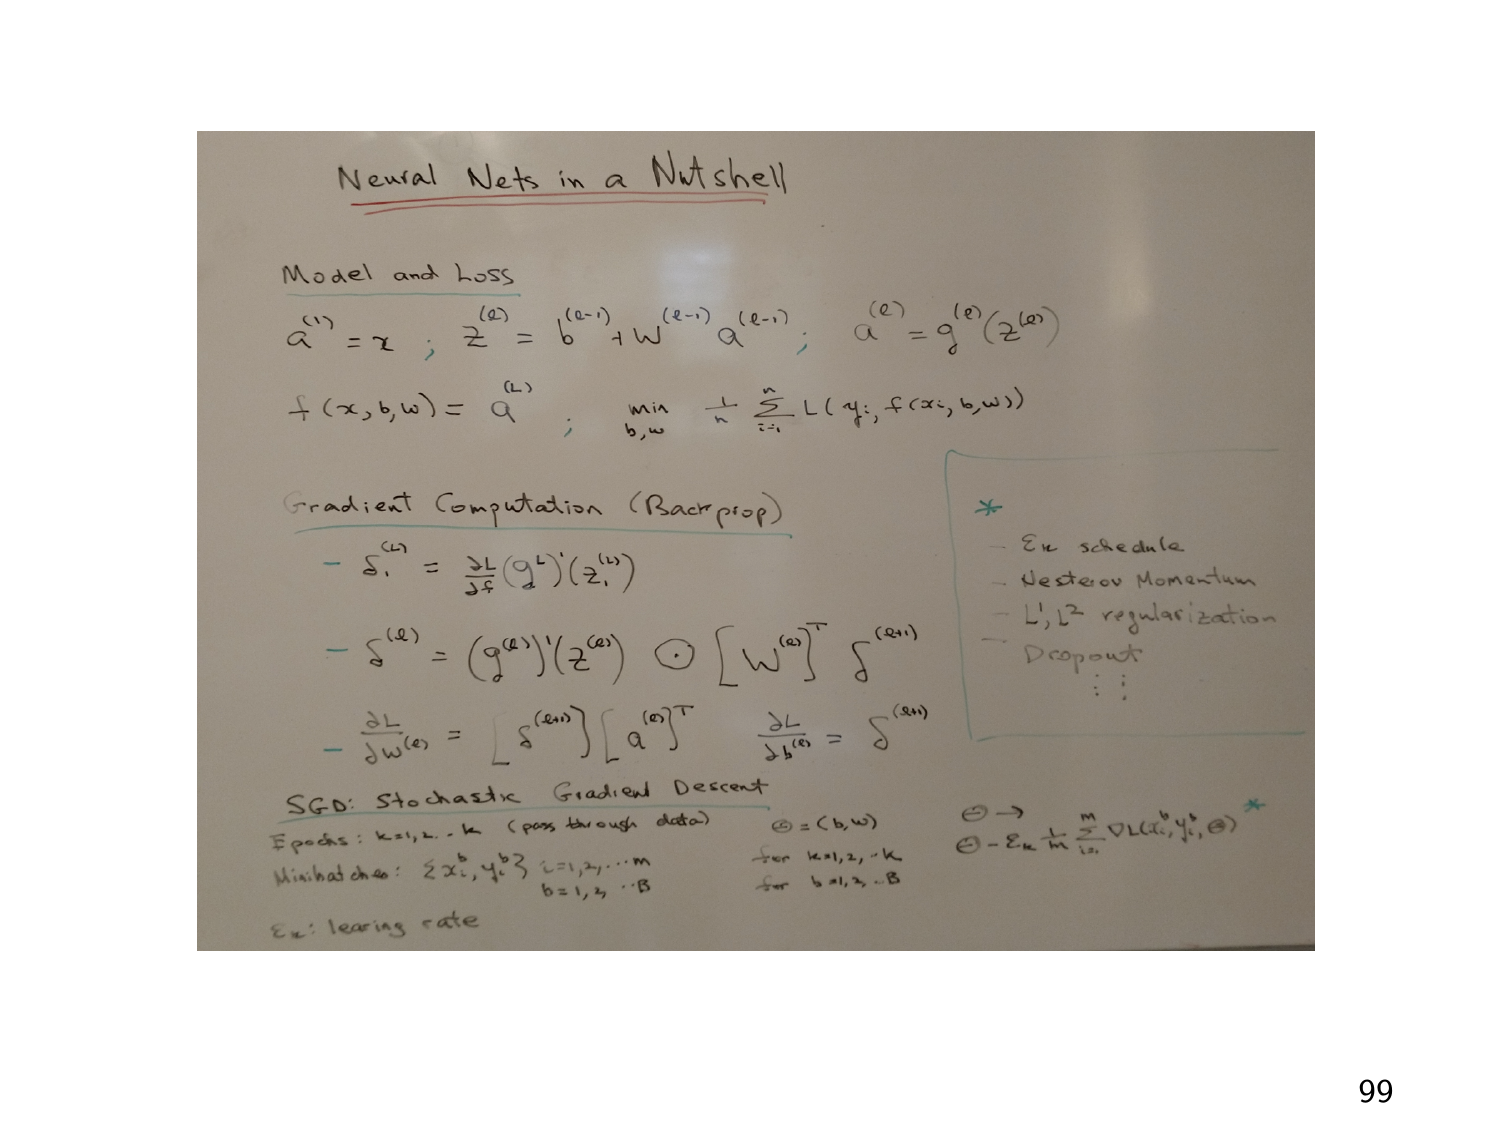 Neural Nets in a Nutshell
Model and Loss
a^(1) = x ; z^(l) = b^(l-1) + W^(l-1) a^(l-1) ; a^(l) = g^(l)(z^(l))
f(x,b,w) = a^(L) ; min b,w 1/n Σ i=1 n L(yi, f(xi,b,w))
Gradient Computation (Backprop)
- δ1^(L) = ∂L/∂f (g^L)'(z1^(L))
- δ^(l) = (g^(l))'(z^(l)) ⊙ [W^(l)]^T δ^(l+1)
- ∂L/∂w^(l) = [δ^(l+1)] [a^(l)]^T ∂L/∂b^(l) = δ^(l+1)
*
- εk schedule
- Nesterov Momentum
- L1, L2 regularization
- Dropout
⋮ ⋮
SGD: Stochastic Gradient Descent
Epochs: k=1,2,..k (pass through data)
Minibatches: {xi^b, yi^b} i=1,2,...m
b=1,2,..B
εk: learing rate
Θ = (b,w)
for k=1,2,..k
for b=1,2,..B
Θ →
Θ - εk 1/m Σ i=1 m ∇L(xi^b, yi^b, Θ) *
99